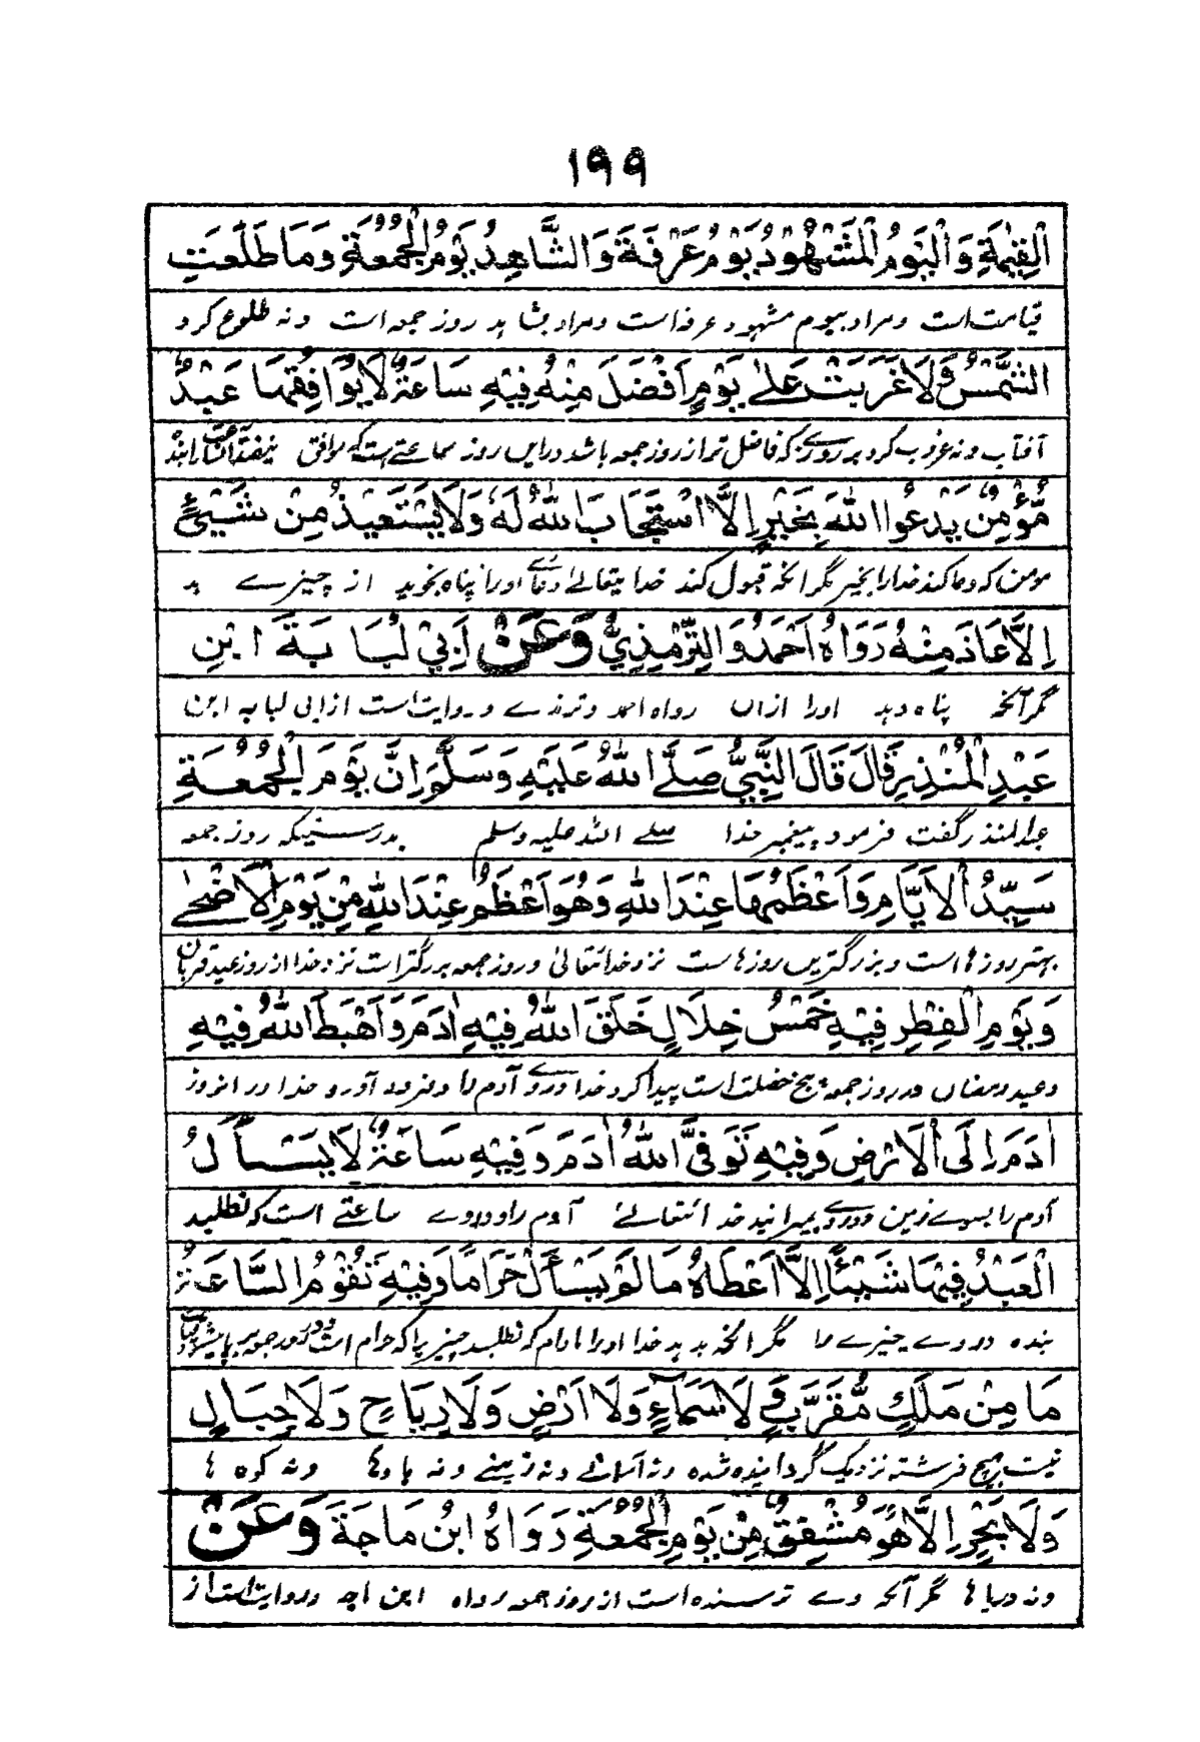 ۱۹۹
الْقِيٰمَةِ وَالْيَوْمُ الْمَشْهُوْدُ يَوْمُ عَرَفَةَ وَالشَّاهِدُ يَوْمُ الْجُمُعَةِ وَمَا طَلَعَتِ
قیامت است ومراد بیوم مشهود عرفه است ومراد بشاہد روز جمعه است ونه طلوع کرد
الشَّمْسُ وَلَا غَرَبَتْ عَلٰى يَوْمٍ اَفْضَلَ مِنْهُ فِيْهِ سَاعَةٌ لَا يُوَافِقُهَا عَبْدٌ
آفتاب ونه غروب کرد بر روزے که فاضل تر از روز جمعه باشد دراین روز ساعتے است که موافق
مُّؤْمِنٌ يَدْعُوا اللّٰهَ بِخَيْرٍ اِلَّا اسْتَجَابَ اللّٰهُ لَهٗ وَلَا يَسْتَعِيْذُ مِنْ شَيْءٍ
مومن که دعا کند خدا را بخیر مگر انکه قبول کند خدایتعالے دعاے اورا ونپناه بخوید از چیزے بد
اِلَّا اَعَاذَ مِنْهُ رَوَاهُ اَحْمَدُ وَالتِّرْمِذِيُّ وَعَنْ اَبِيْ لُبَابَةَ ابْنِ
مگر آنکه پناه دہد اورا ازاں رواه احمد وترمذے وروایت است از ابی لبابه ابن
عَبْدِ الْمُنْذِرِ قَالَ قَالَ النَّبِيُّ صَلَّى اللّٰهُ عَلَيْهِ وَسَلَّمَ اِنَّ يَوْمَ الْجُمُعَةِ
عبدالمنذر گفت فرمود پیغمبر خدا صلے اللہ علیہ وسلم بدرستیکه روز جمعه
سَيِّدُ الْاَيَّامِ وَاَعْظَمُهَا عِنْدَ اللّٰهِ وَهُوَ اَعْظَمُ عِنْدَ اللّٰهِ مِنْ يَوْمِ الْاَضْحٰى
بہتر روزہا است وبزرگترین روزہاست نزد خدا تعالیٰ وروز جمعه بزرگتر است نزد خدا از روز عید قربان
وَيَوْمِ الْفِطْرِ فِيْهِ خَمْسُ خِلَالٍ خَلَقَ اللّٰهُ فِيْهِ اٰدَمَ وَاَهْبَطَ اللّٰهُ فِيْهِ
وعید رمضان در روز جمعه پنج خصلت است پیدا کرد خدا دروے آدم را وفرود آورد خدا در انروز
اٰدَمَ اِلَى الْاَرْضِ وَفِيْهِ تَوَفَّى اللّٰهُ اٰدَمَ وَفِيْهِ سَاعَةٌ لَا يَسْأَلُ
آدم را بسوے زمین ودروے بمیرانید خدائتعالےٰ آدم را ودروے ساعتے است که نطلبد
الْعَبْدُ فِيْهَا شَيْئًا اِلَّا اَعْطَاهُ مَا لَمْ يَسْأَلْ حَرَامًا وَفِيْهِ تَقُوْمُ السَّاعَةُ
بنده دروے چیزے را مگر انکه بدہد خدا اورا مادام که نطلبد چیزیرا که حرام است
مَا مِنْ مَلَكٍ مُّقَرَّبٍ وَّلَا سَمَآءٍ وَلَا اَرْضٍ وَلَا رِيَاحٍ وَلَا جِبَالٍ
نیست ہیچ فرشته نزدیک گردانیده شده ونه آسمانے ونه زمینے ونه بادہا ونه کوه ہا
وَلَا بَحْرٍ اِلَّا هُوَ مُشْفِقٌ مِّنْ يَوْمِ الْجُمُعَةِ رَوَاهُ ابْنُ مَاجَةَ وَعَنْ
ونه دریا ہا مگر آنکه وے ترسنده است از روز جمعه رواه ابن ماجه وروایت است از